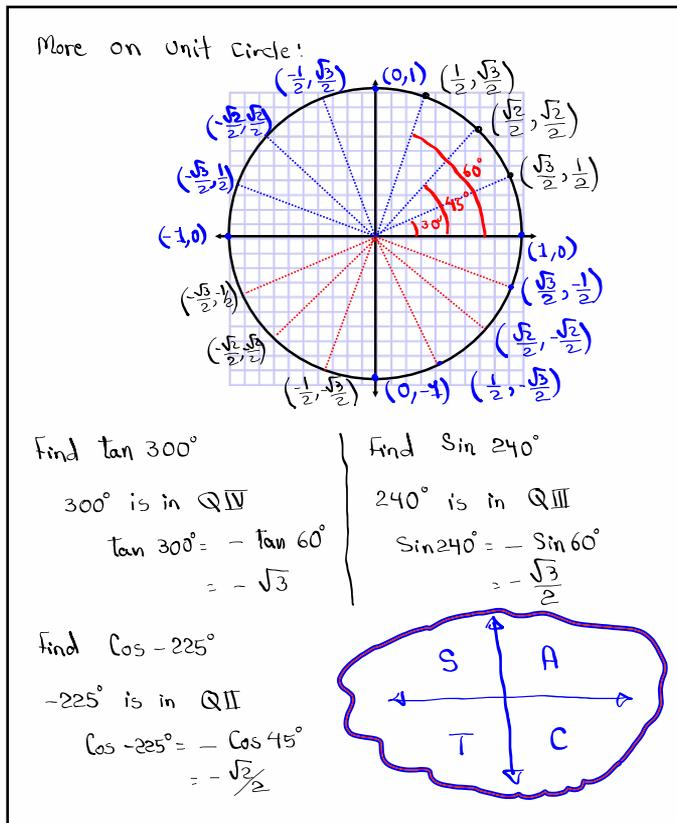 More on Unit Circle!
(-1/2, √3/2) (0,1) (1/2, √3/2)
(-√2/2, √2/2) (√2/2, √2/2)
(-√3/2, 1/2) 60° (√3/2, 1/2)
45°
30°
(-1,0) (1,0)
(-√3/2, -1/2) (√3/2, -1/2)
(-√2/2, -√2/2) (√2/2, -√2/2)
(-1/2, -√3/2) (0,-1) (1/2, -√3/2)
Find tan 300°
300° is in QIV
tan 300° = - tan 60°
= - √3
Find Sin 240°
240° is in QIII
Sin 240° = - Sin 60°
= - √3/2
Find Cos -225°
-225° is in QII
Cos -225° = - Cos 45°
= - √2/2
S A
T C